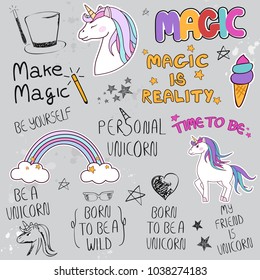 MAGIC
Make
Magic
MAGIC
IS
REALITY.
BE YOURSELF
PERSONAL
UNICORN
TIME TO BE
BE A
UNICORN
BORN
TO BE A
WILD
BORN
TO BE A
UNICORN
MY
FRIEND IS
UNICORN
shutterstock
IMAGE ID: 1038274183
www.shutterstock.com